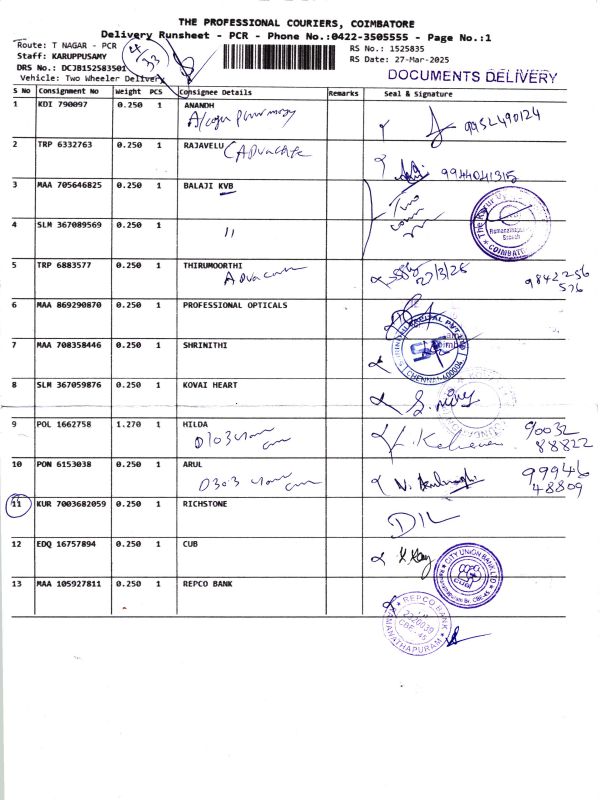 THE PROFESSIONAL COURIERS, COIMBATORE
Delivery Runsheet - PCR - Phone No.:0422-3505555 - Page No.:1
Route: T NAGAR - PCR
Staff: KARUPPUSAMY
DRS No.: DCJB152583501
Vehicle: Two Wheeler Delivery
4/33
RS No.: 1525835
RS Date: 27-Mar-2025
DOCUMENTS DELIVERY
S No Consignment No Weight PCS Consignee Details Remarks Seal & Signature
1 KDI 790097 0.250 1 ANANDH
9952490124
2 TRP 6332763 0.250 1 RAJAVELU (Advocate
9944041315
3 MAA 705646825 0.250 1 BALAJI KVB
4 SLM 367089569 0.250 1 "
COIMBATO
5 TRP 6883577 0.250 1 THIRUMOORTHI
27/3/25
9842256
576
6 MAA 869290870 0.250 1 PROFESSIONAL OPTICALS
7 MAA 708358446 0.250 1 SHRINITHI
8 SLM 367059876 0.250 1 KOVAI HEART
9 POL 1662758 1.270 1 HILDA
90032
88822
10 PON 6153038 0.250 1 ARUL
99946
48809
11 KUR 7003682059 0.250 1 RICHSTONE
D/L
12 EDQ 16757894 0.250 1 CUB
CITY UNION BANK LTD
13 MAA 105927811 0.250 1 REPCO BANK
REPCO BANK
CBE-45
RAMANATHAPURAM